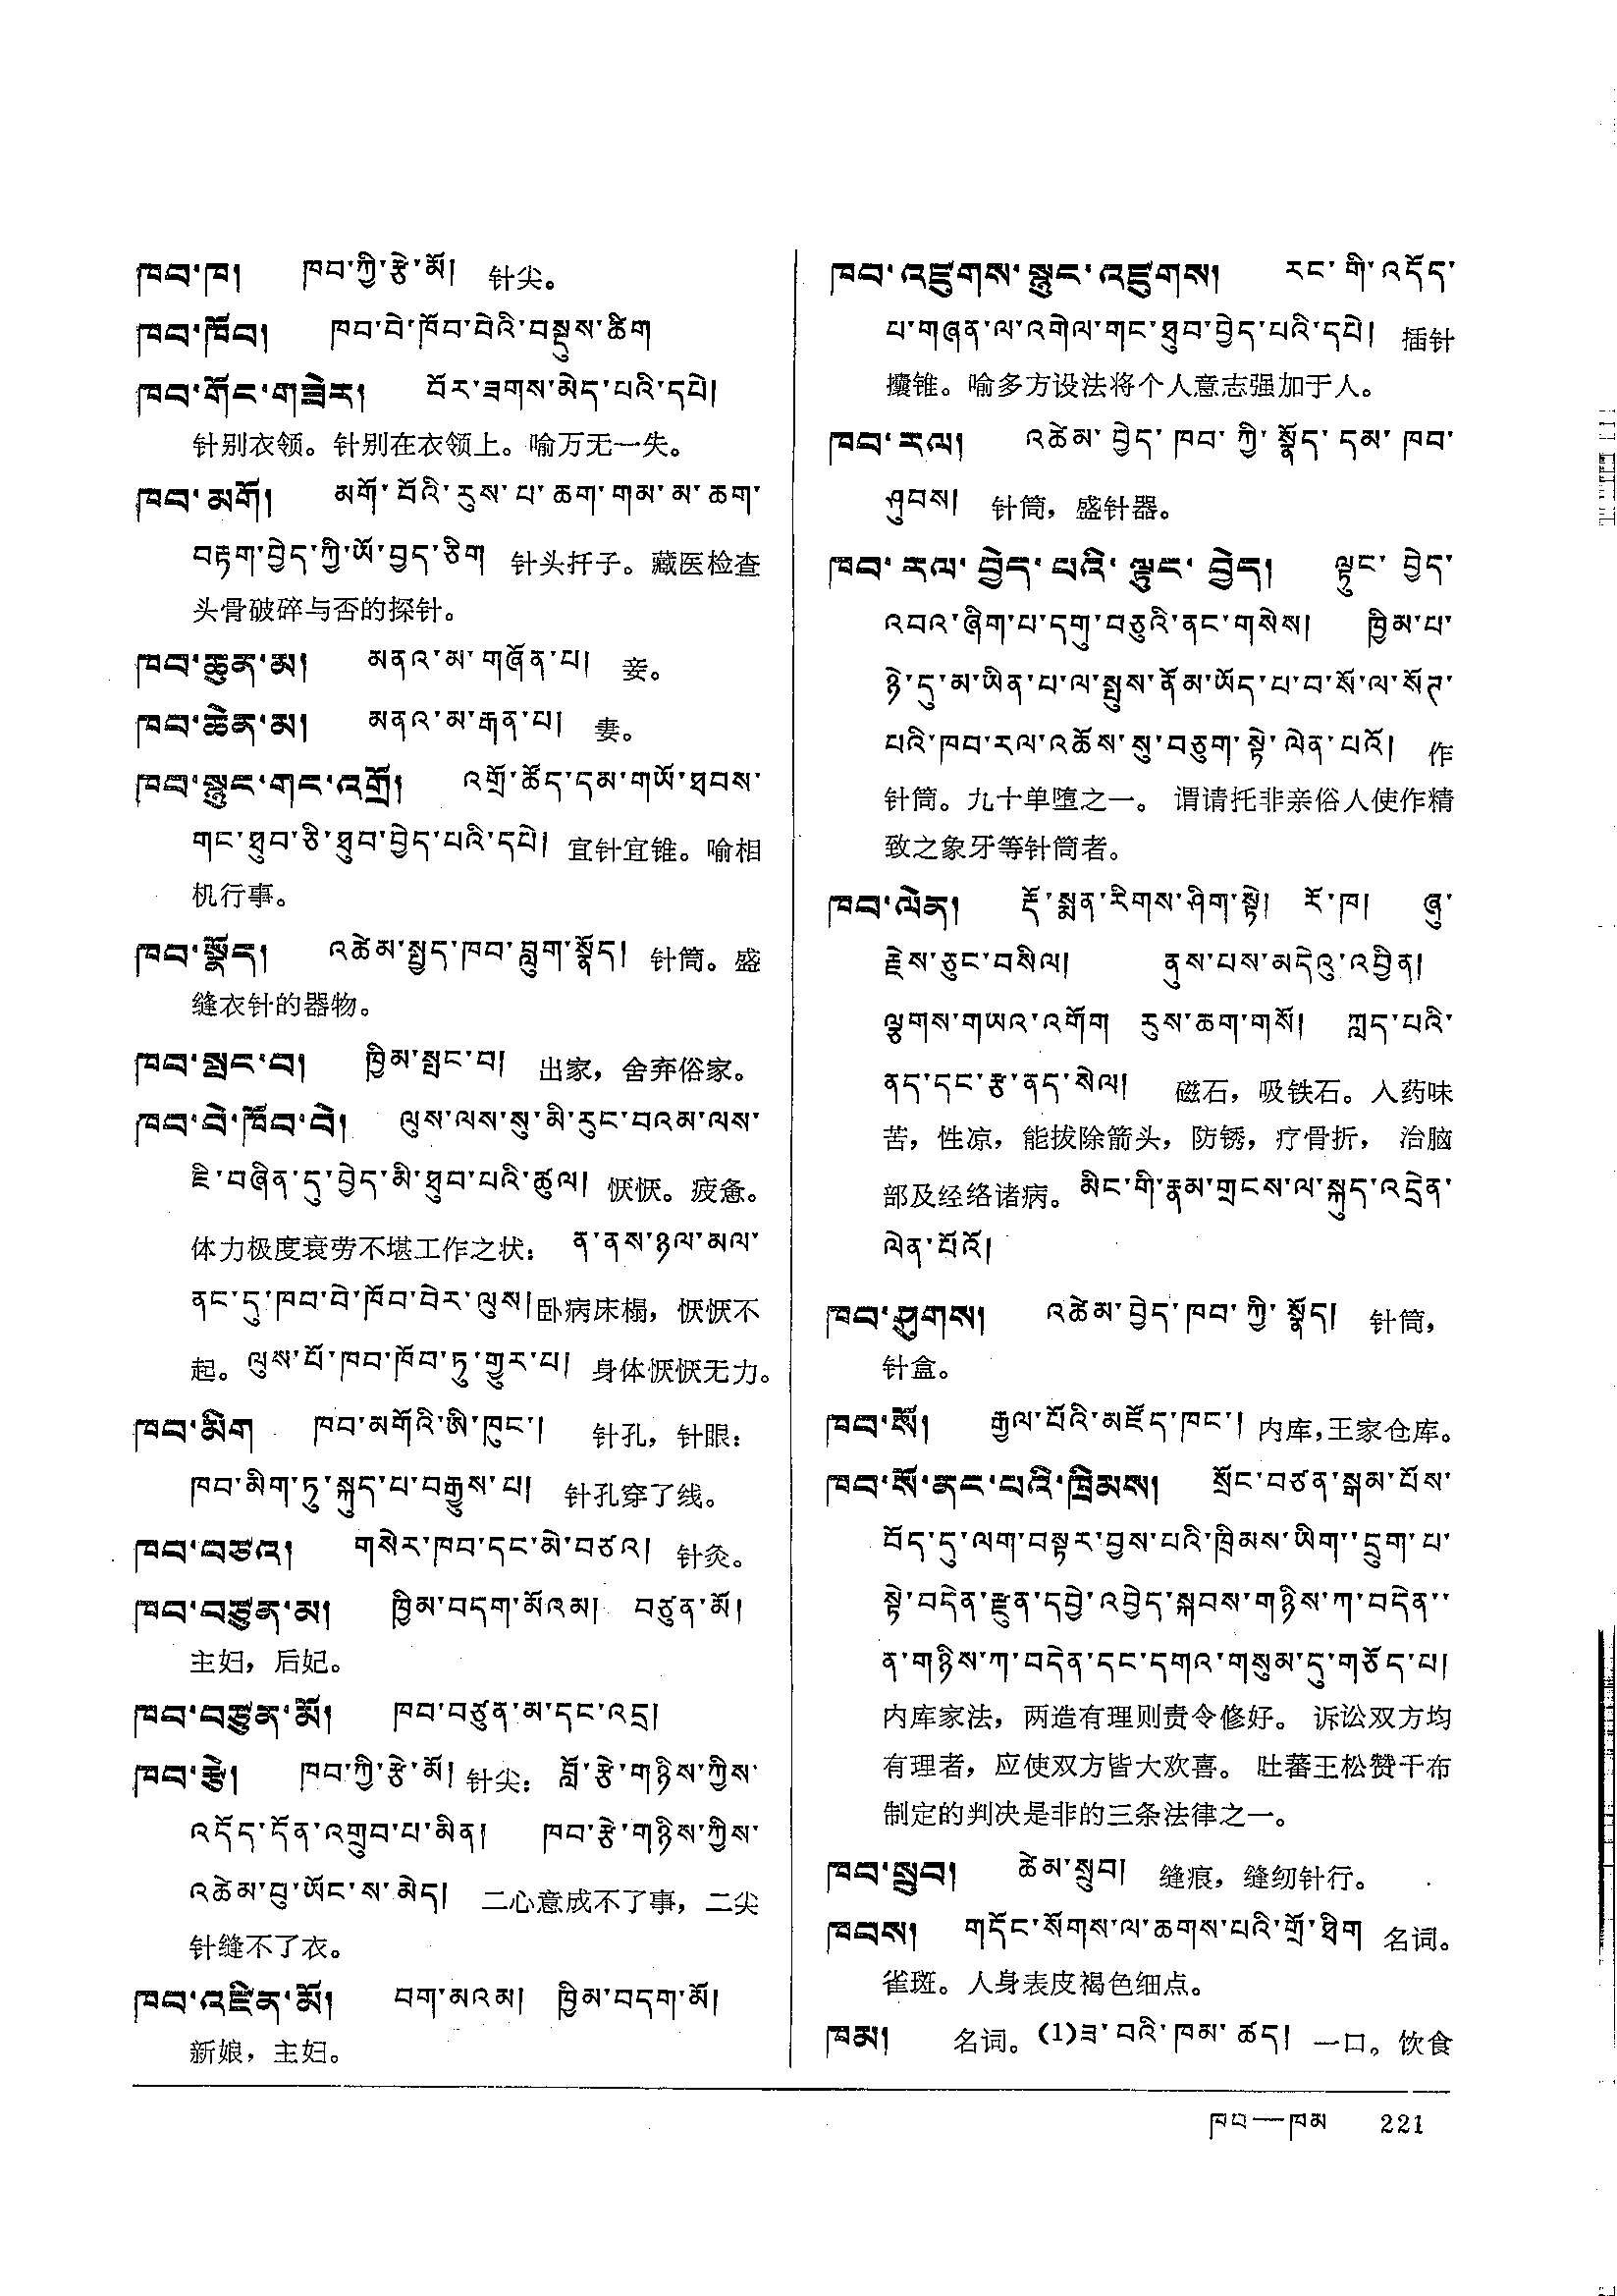 ཁབ་ཁ། ཁབ་ཀྱི་རྩེ་མོ། 针尖。
ཁབ་ཁོབ། ཁབ་བེ་ཁོབ་བེའི་བསྡུས་ཚིག
ཁབ་གོང་གཟེར། བོར་ཟགས་མེད་པའི་དཔེ།
针别衣领。针别在衣领上。喻万无一失。
ཁབ་མགོ། མགོ་བོའི་རུས་པ་ཆག་གམ་མ་ཆག་
བརྟག་བྱེད་ཀྱི་ཡོ་བྱད་ཅིག 针头扦子。藏医检查
头骨破碎与否的探针。
ཁབ་ཆུན་མ། མནའ་མ་གཞོན་པ། 妾。
ཁབ་ཆེན་མ། མནའ་མ་རྒན་པ། 妻。
ཁབ་སྙུང་གང་འགྲོ། འགྲོ་ཚོད་དམ་གཡོ་ཐབས་
གང་ཐུབ་ཅི་ཐུབ་བྱེད་པའི་དཔེ། 宜针宜锥。喻相
机行事。
ཁབ་སྣོད། འཚེམ་སྤྱད་ཁབ་བླུག་སྣོད། 针筒。盛
缝衣针的器物。
ཁབ་སྤང་བ། ཁྱིམ་སྤང་བ། 出家，舍弃俗家。
ཁབ་བེ་ཁོབ་བེ། ལུས་ལས་སུ་མི་རུང་བའམ་ལས་
ཇི་བཞིན་དུ་བྱེད་མི་ཐུབ་པའི་ཚུལ། 恹恹。疲惫。
体力极度衰劳不堪工作之状： ན་ནས་ཉལ་མལ་
ནང་དུ་ཁབ་བེ་ཁོབ་བེར་ལུས། 卧病床榻，恹恹不
起。ལུས་པོ་ཁབ་ཁོབ་ཏུ་གྱུར་པ། 身体恹恹无力。
ཁབ་མིག ཁབ་མགོའི་ཨི་ཁུང་། 针孔，针眼：
ཁབ་མིག་ཏུ་སྐུད་པ་བརྒྱུས་པ། 针孔穿了线。
ཁབ་བཙའ། གསེར་ཁབ་དང་མེ་བཙའ། 针灸。
ཁབ་བཙུན་མ། ཁྱིམ་བདག་མོའམ། བཙུན་མོ།
主妇，后妃。
ཁབ་བཙུན་མོ། ཁབ་བཙུན་མ་དང་འདྲ།
ཁབ་རྩེ། ཁབ་ཀྱི་རྩེ་མོ། 针尖： བློ་རྩེ་གཉིས་ཀྱིས་
འདོད་དོན་འགྲུབ་པ་མིན། ཁབ་རྩེ་གཉིས་ཀྱིས་
འཚེམ་བུ་ཡོང་ས་མེད། 二心意成不了事，二尖
针缝不了衣。
ཁབ་འཛིན་མོ། བག་མའམ། ཁྱིམ་བདག་མོ།
新娘，主妇。
ཁབ་འཛུགས་སྙུང་འཛུགས། རང་གི་འདོད་
པ་གཞན་ལ་འགེལ་གང་ཐུབ་བྱེད་པའི་དཔེ། 插针
攮锥。喻多方设法将个人意志强加于人。
ཁབ་རལ། འཚེམ་བྱེད་ཁབ་ཀྱི་སྣོད་དམ་ཁབ་
ཤུབས། 针筒，盛针器。
ཁབ་རལ་བྱེད་པའི་ལྟུང་བྱེད། ལྟུང་བྱེད་
འབའ་ཞིག་པ་དགུ་བཅུའི་ནང་གསེས། ཁྱིམ་པ་
ཉེ་དུ་མ་ཡིན་པ་ལ་སྤུས་ནོམ་ཡོད་པ་བ་སོ་ལ་སོཊ་
པའི་ཁབ་རལ་འཚོས་སུ་བཅུག་སྟེ་ལེན་པའོ། 作
针筒。九十单堕之一。 谓请托非亲俗人使作精
致之象牙等针筒者。
ཁབ་ལེན། རྡོ་སྨན་རིགས་ཤིག་སྟེ། རོ་ཁ། ཞུ་
རྗེས་ཅུང་བསིལ། ནུས་པས་མདེའུ་འབྱིན།
ལྕགས་གཡའ་འགོག རུས་ཆག་གསོ། ཀླད་པའི་
ནད་དང་རྩ་ནད་སེལ། 磁石，吸铁石。入药味
苦，性凉，能拔除箭头，防锈，疗骨折， 治脑
部及经络诸病。མིང་གི་རྣམ་གྲངས་ལ་སྐུད་འདྲེན་
ལེན་པོའོ།
ཁབ་ཤུགས། འཚེམ་བྱེད་ཁབ་ཀྱི་སྣོད། 针筒，
针盒。
ཁབ་སོ། རྒྱལ་པོའི་མཛོད་ཁང་། 内库，王家仓库。
ཁབ་སོ་ནང་པའི་ཁྲིམས། སྲོང་བཙན་སྒམ་པོས་
བོད་དུ་ལག་བསྟར་བྱས་པའི་ཁྲིམས་ཡིག་དྲུག་པ་
སྟེ་བདེན་རྫུན་དབྱེ་འབྱེད་སྐབས་གཉིས་ཀ་བདེན་
ན་གཉིས་ཀ་བདེན་དང་དགའ་གསུམ་དུ་གཅོད་པ།
内库家法，两造有理则责令修好。 诉讼双方均
有理者，应使双方皆大欢喜。 吐蕃王松赞干布
制定的判决是非的三条法律之一。
ཁབ་སྲུབ། ཚེམ་སྲུབ། 缝痕，缝纫针行。
ཁབས། གདོང་སོགས་ལ་ཆགས་པའི་གྲོ་ཐིག 名词。
雀斑。人身表皮褐色细点。
ཁམ། 名词。(1)ཟ་བའི་ཁམ་ཚད། 一口。饮食
ཁབ—ཁམ 221